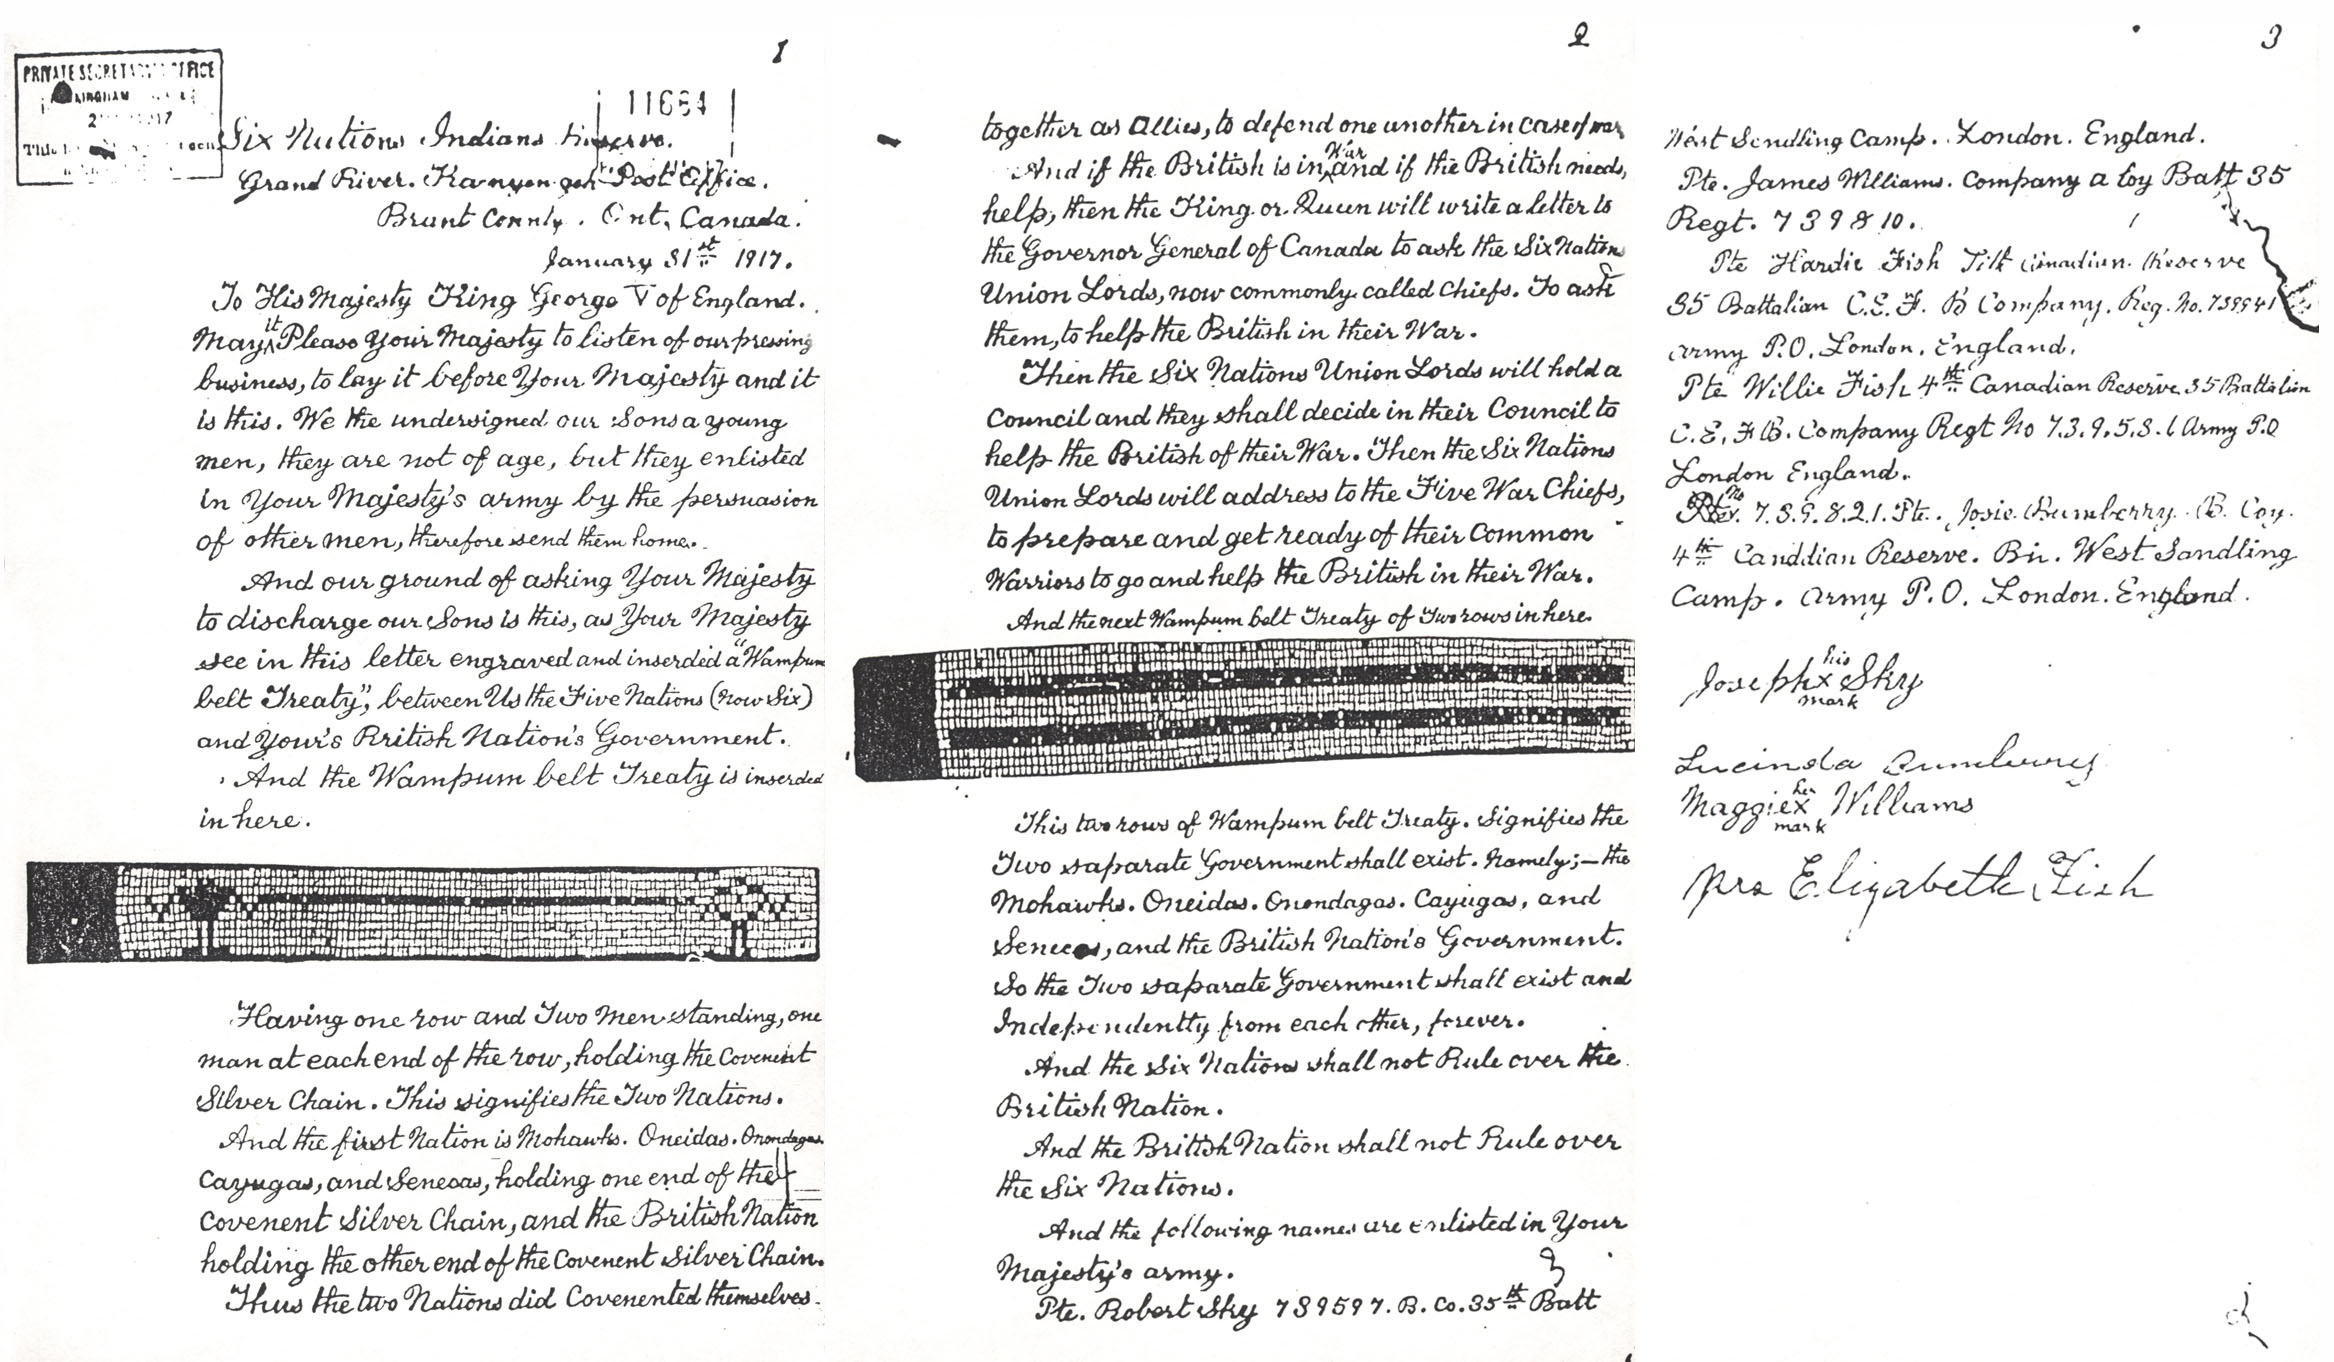 1
PRIVATE SECRETARY'S OFFICE
11684
Six Nations Indians Reserve.
Grand River. Kanyengeh Post Office.
Brant County. Ont, Canada.
January 31st 1917.
To His Majesty King George V of England.
May it Please Your Majesty to listen of our pressing
business, to lay it before Your Majesty and it
is this. We the undersigned our Sons a young
men, they are not of age, but they enlisted
in Your Majesty's army by the persuasion
of other men, therefore send them home.
And our ground of asking Your Majesty
to discharge our Sons is this, as Your Majesty
see in this letter engraved and inserded a "Wampum
belt Treaty", between Us the Five Nations (now Six)
and Your's British Nation's Government.
And the Wampum belt Treaty is inserded
in here.
Having one row and Two Men standing, one
man at each end of the row, holding the Covenent
Silver Chain. This signifies the Two Nations.
And the first Nation is Mohawks. Oneidas. Onondagas.
Cayugas, and Senecas, holding one end of the
Covenent Silver Chain, and the British Nation
holding the other end of the Covenent Silver Chain.
Thus the two Nations did Covenented themselves
2
together as Allies, to defend one unother in case of war
And if the British is in War and if the British needs,
help, then the King or Queen will write a letter to
the Governor General of Canada to ask the Six Nations
Union Lords, now commonly called Chiefs. To ask
them, to help the British in their War.
Then the Six Nations Union Lords will hold a
Council and they shall decide in their Council to
help the British of their War. Then the Six Nations
Union Lords will address to the Five War Chiefs,
to prepare and get ready of their Common
Warriors to go and help the British in their War.
And the next Wampum belt Treaty of Two rows in here.
This two rows of Wampum belt Treaty. Signifies the
Two saparate Government shall exist. Namely;— the
Mohawks. Oneidas. Onondagas. Cayugas, and
Senecas, and the British Nation's Government.
So the Two saparate Government shall exist and
Independently from each other, forever.
And the Six Nations shall not Rule over the
British Nation.
And the British Nation shall not Rule over
the Six Nations.
And the following names are enlisted in Your
Majesty's army.
Pte. Robert Sky 739597. B. Co. 35th Batt
3
West Sendling Camp. London. England.
Pte. James Williams. Company a Coy Batt 35
Regt. 739810.
Pte Hardie Fish Canadian Reserve
35 Battalian C.E.F. B Company. Reg. No. 739941
army P.O. London. England.
Pte Willie Fish 4th Canadian Reserve 35 Battalion
C.E.F B. Company Regt No 7.3.9.5.3.6 Army P.O
London England.
No. 7.3.9.8.2.1. Pte. Josie Bumberry. B. Coy.
4th Canddian Reserve. Bn. West Sandling
Camp. Army P.O. London. England.
Joseph his x mark Sky
Lucinda Bumberry
Maggie her x mark Williams
Mrs Elizabeth Fish